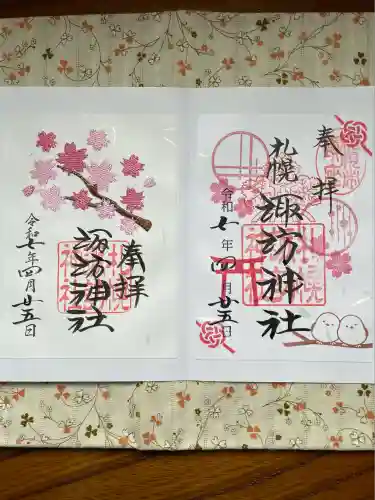 奉拝
札幌
諏訪神社
令和七年四月廿五日
奉拝
諏訪神社
令和七年四月廿五日